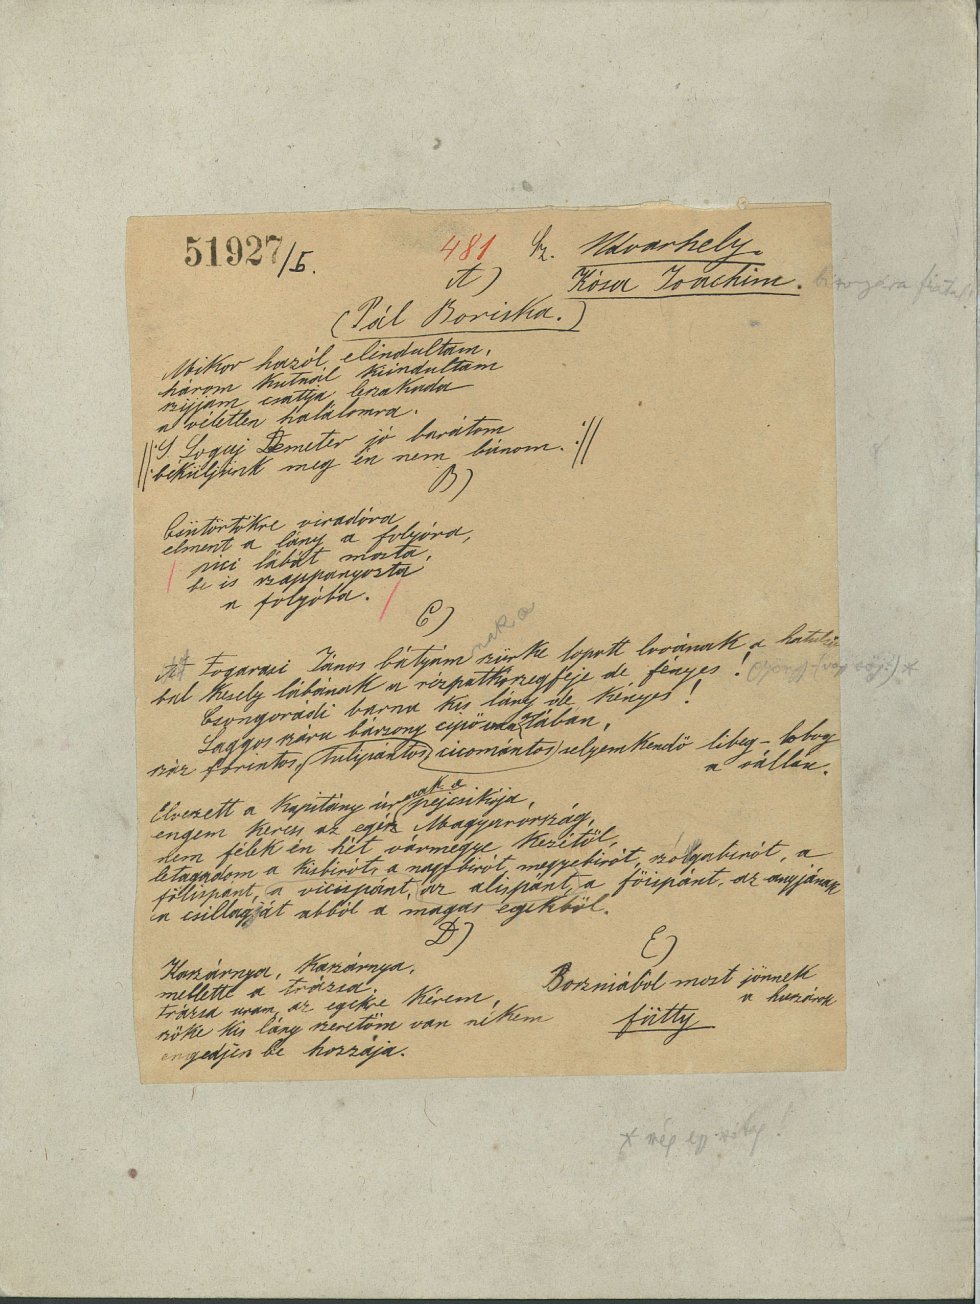 51927/5.
481 Sz. Udvarhely.
Kósa Joachim.
A)
(Pál Boriska.)
Mikor hazól elindultam,
három kutnál kiindultam
szijjam csattja leszakada
a véletlen halálomra.
||: S. Loguj Demeter jó barátom
béküljünk meg én nem bánom. :||
B)
Csütörtökre viradóra
elment a lány a folyóra,
pici lábát mosta,
be is szappanyozta
a folyóba.
C)
nak a
Fogarasi János bátyám szürke lopott lovának a hatulsó
bal kesely lábának a rézpatkószegfeje de fényes!
Csongorádi barna kis lány de kényes!
Laggos száru bárzony cipő van lábán,
száz forintos, tulipántos, cicomántos selyemkendő libeg-lobog
a vállán.
nak a
Elveszett a kapitány úr pejcsikója,
engem keress az egész Magyarország,
nem félek én hét vármegye kezétől,
letagadom a kisbirót, a nagybirót, megyebirót, szolgabirót, a
főlispánt, a viceispánt, az alispánt, a főispánt, az anyjának
a csillagját abból a magas egekből.
D)
Kaszárnya, kaszárnya,
mellette a trázsa,
trázsa uram, az egekre kérem,
szőke kis lány szeretőm van nékem
engedjen be hozzája.
E)
Boszniából most jönnek
a huszárok
fütty